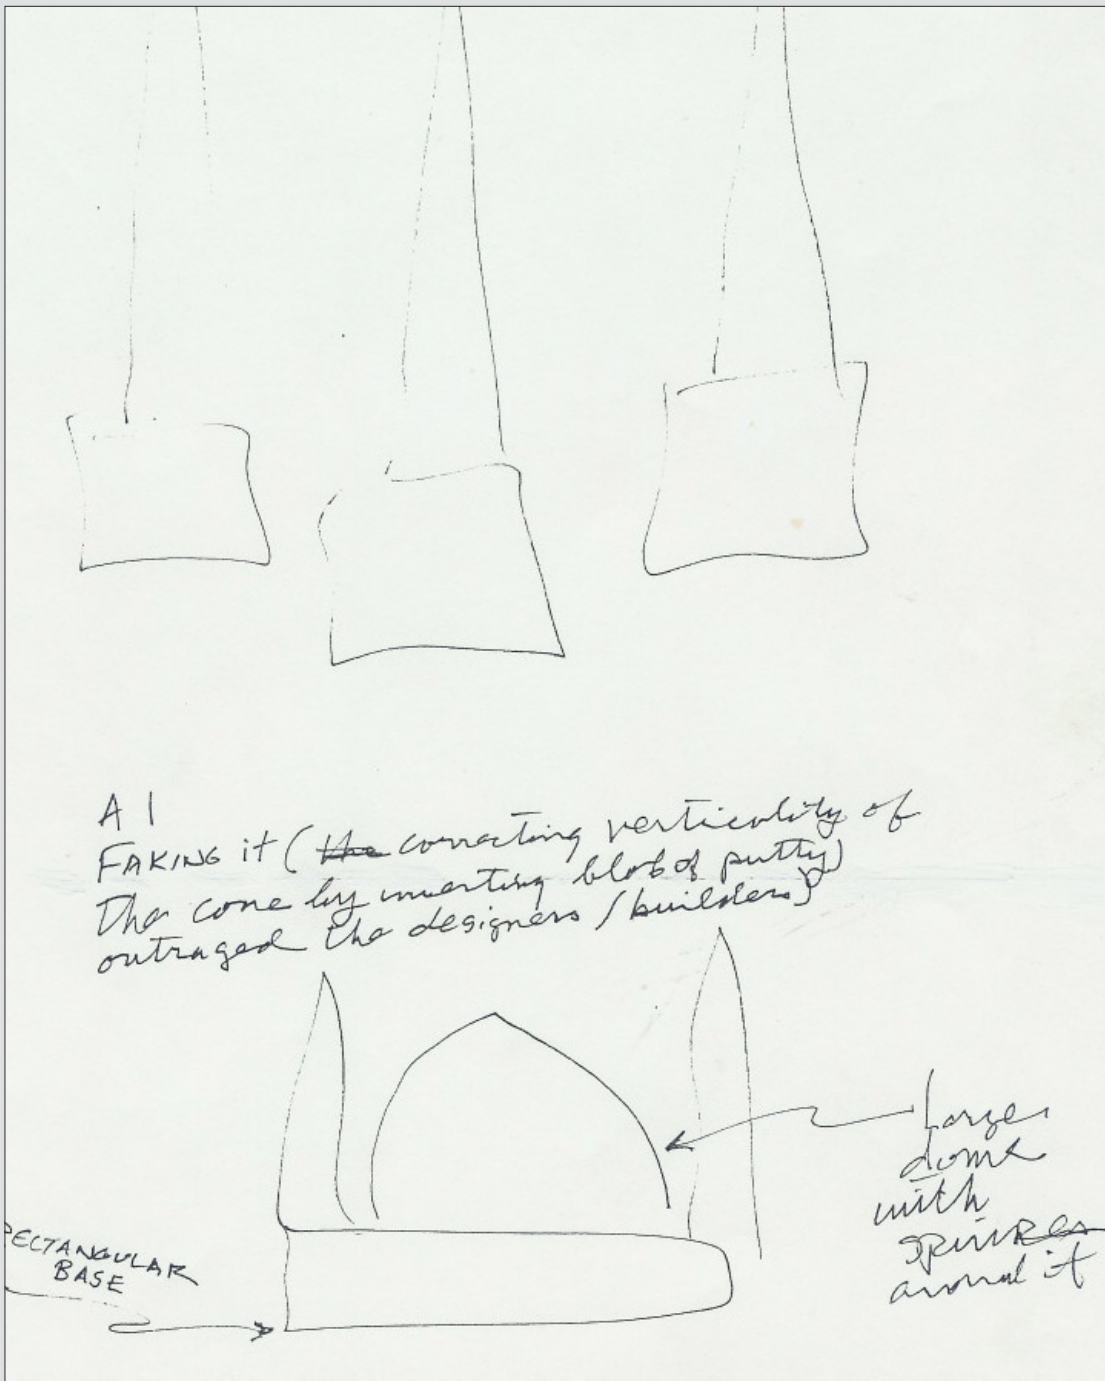 A1
FAKING it (the correcting verticality of
the cone by inserting blob of putty)
outraged the designers / builders)
large
dome
with
spires
around it
RECTANGULAR
BASE